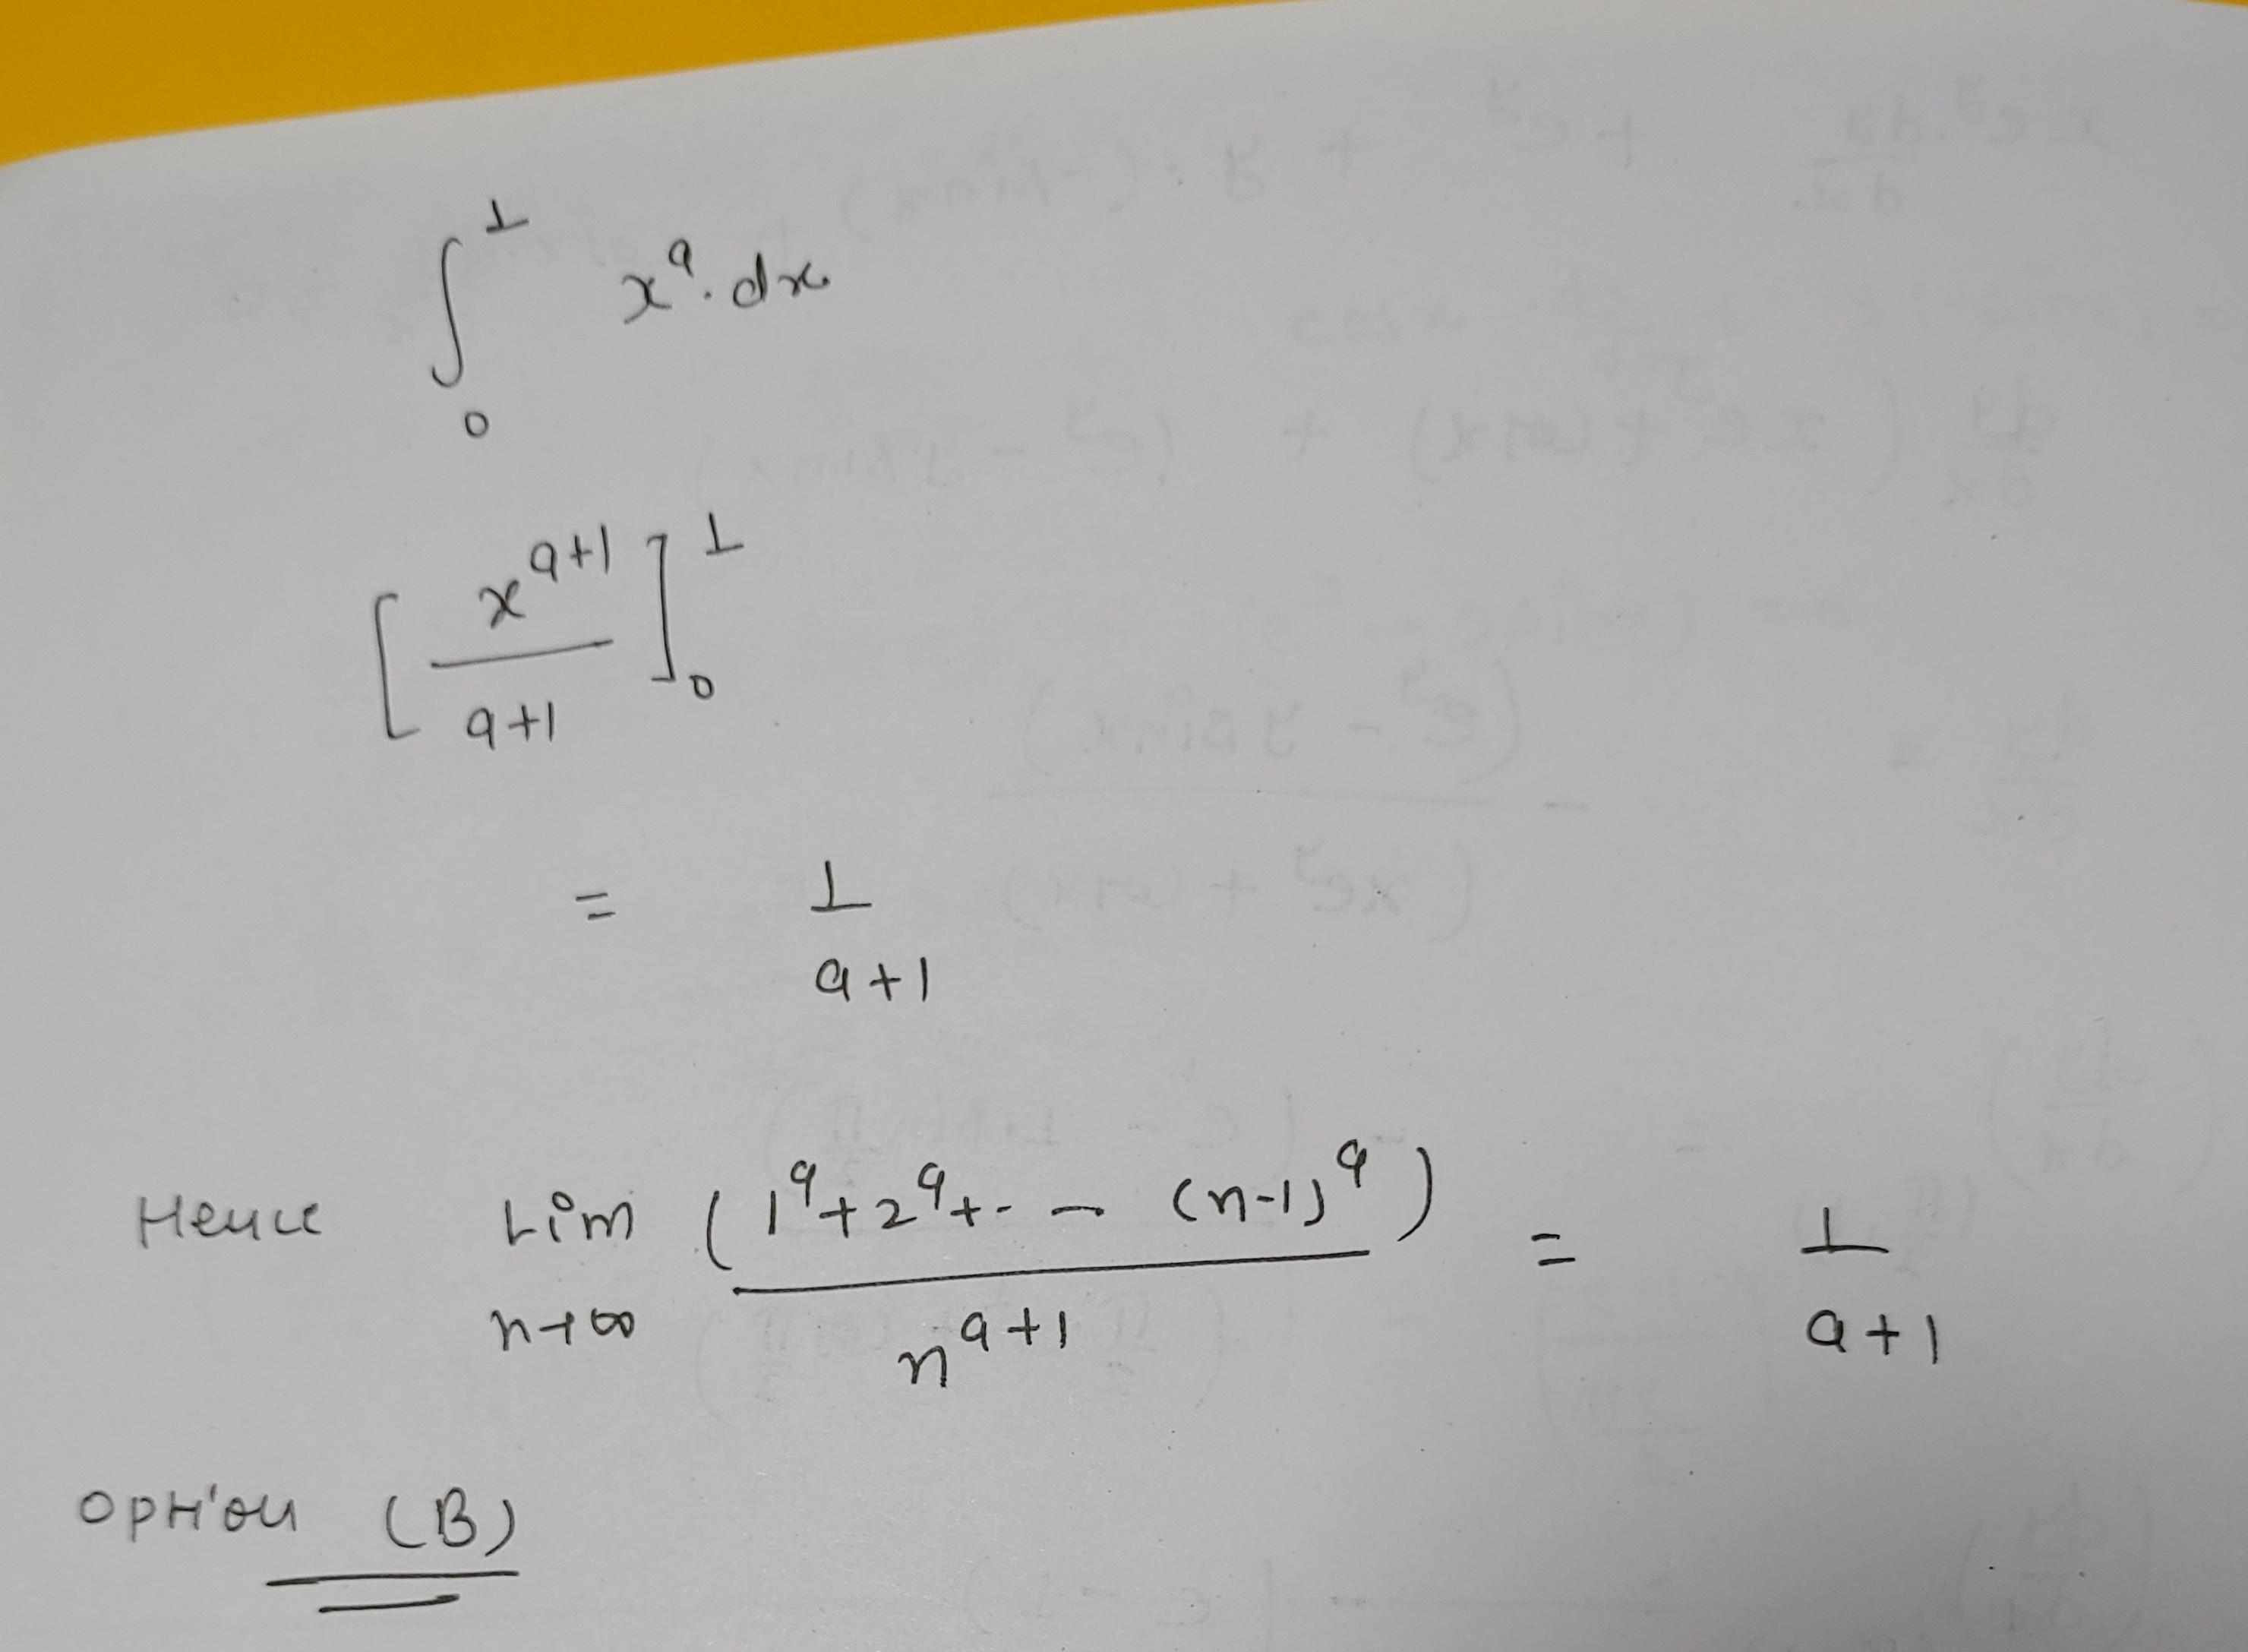 ∫₀¹ xᵃ. dx
[ xᵃ⁺¹ / a+1 ]₀¹
= 1 / a+1
Hence Lim n→∞ ( 1ᵃ+2ᵃ+-- (n-1)ᵃ ) / nᵃ⁺¹ = 1 / a+1
option (B)